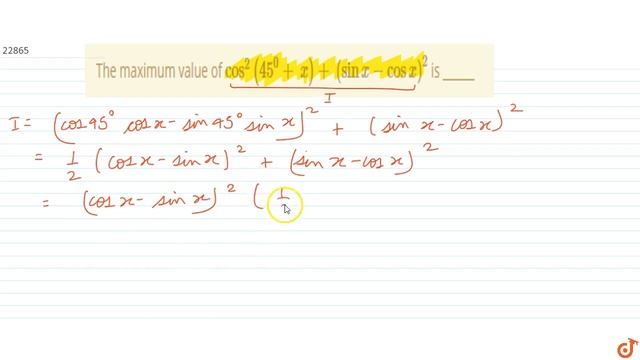 22865
The maximum value of cos² (45⁰ + x) + (sin x − cos x)² is ____
I
I = (cos 45° cos x − sin 45° sin x)² + (sin x − cos x)²
= 1/2 (cos x − sin x)² + (sin x − cos x)²
= (cos x − sin x)² ( 1/